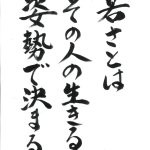 若さとは
その人の生きる
姿勢で決まる